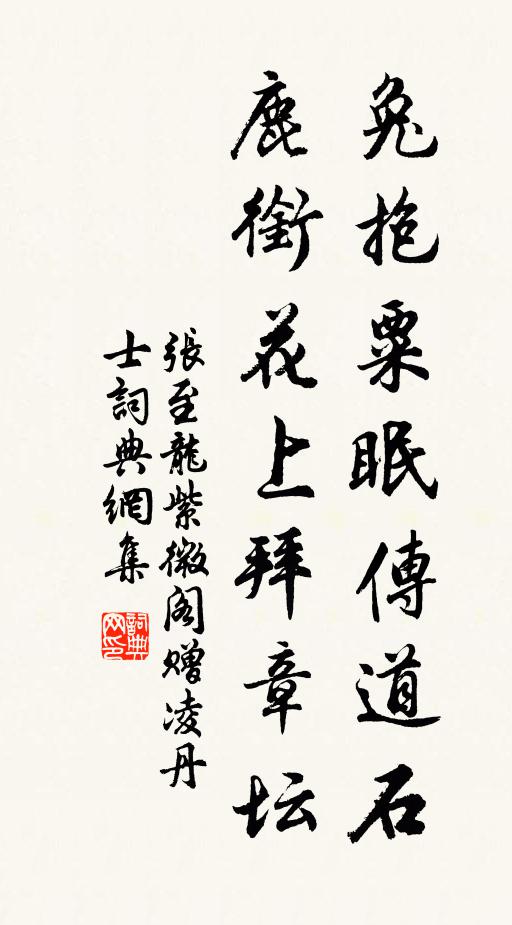 兔抱粟眠傳道石
鹿銜花上拜章坛
張至龍紫微阁赠凌丹
士詞典網集
詞典网印